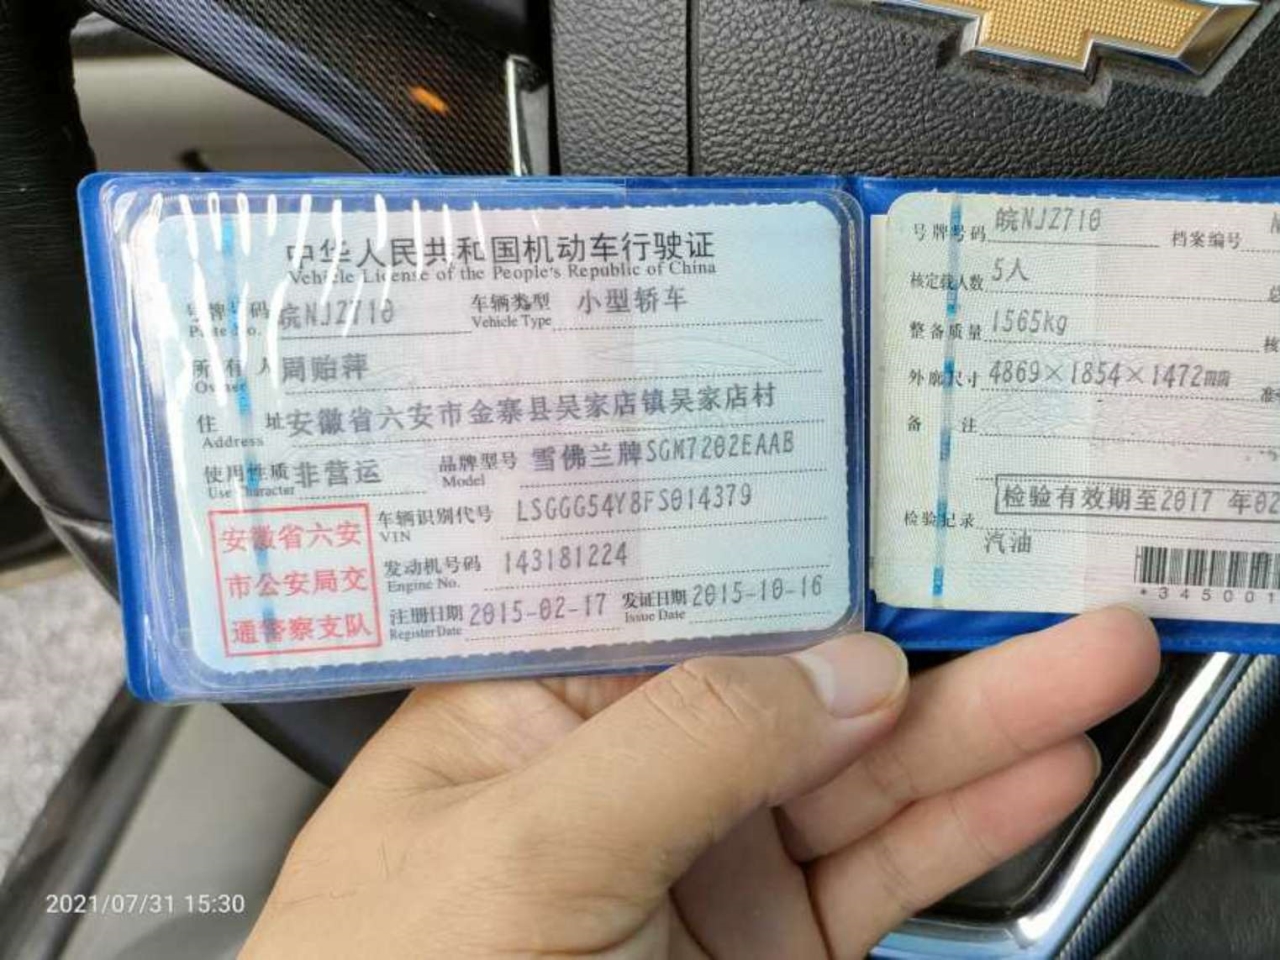 中华人民共和国机动车行驶证
Vehicle License of the People's Republic of China
号牌号码 皖NJ2710 车辆类型 小型轿车
Plate No. Vehicle Type
所有人 周贻萍
Owner
住址 安徽省六安市金寨县吴家店镇吴家店村
Address
使用性质 非营运 品牌型号 雪佛兰牌SGM7202EAAB
Use Character Model
安徽省六安
市公安局交
通警察支队
车辆识别代号 LSGGG54Y8FS014379
VIN
发动机号码 143181224
Engine No.
注册日期 2015-02-17 发证日期 2015-10-16
Register Date Issue Date
号牌号码 皖NJ2710 档案编号
核定载人数 5人
整备质量 1565kg
外廓尺寸 4869×1854×1472mm
备注
检验有效期至2017 年02
检验记录
汽油
*345001
2021/07/31 15:30